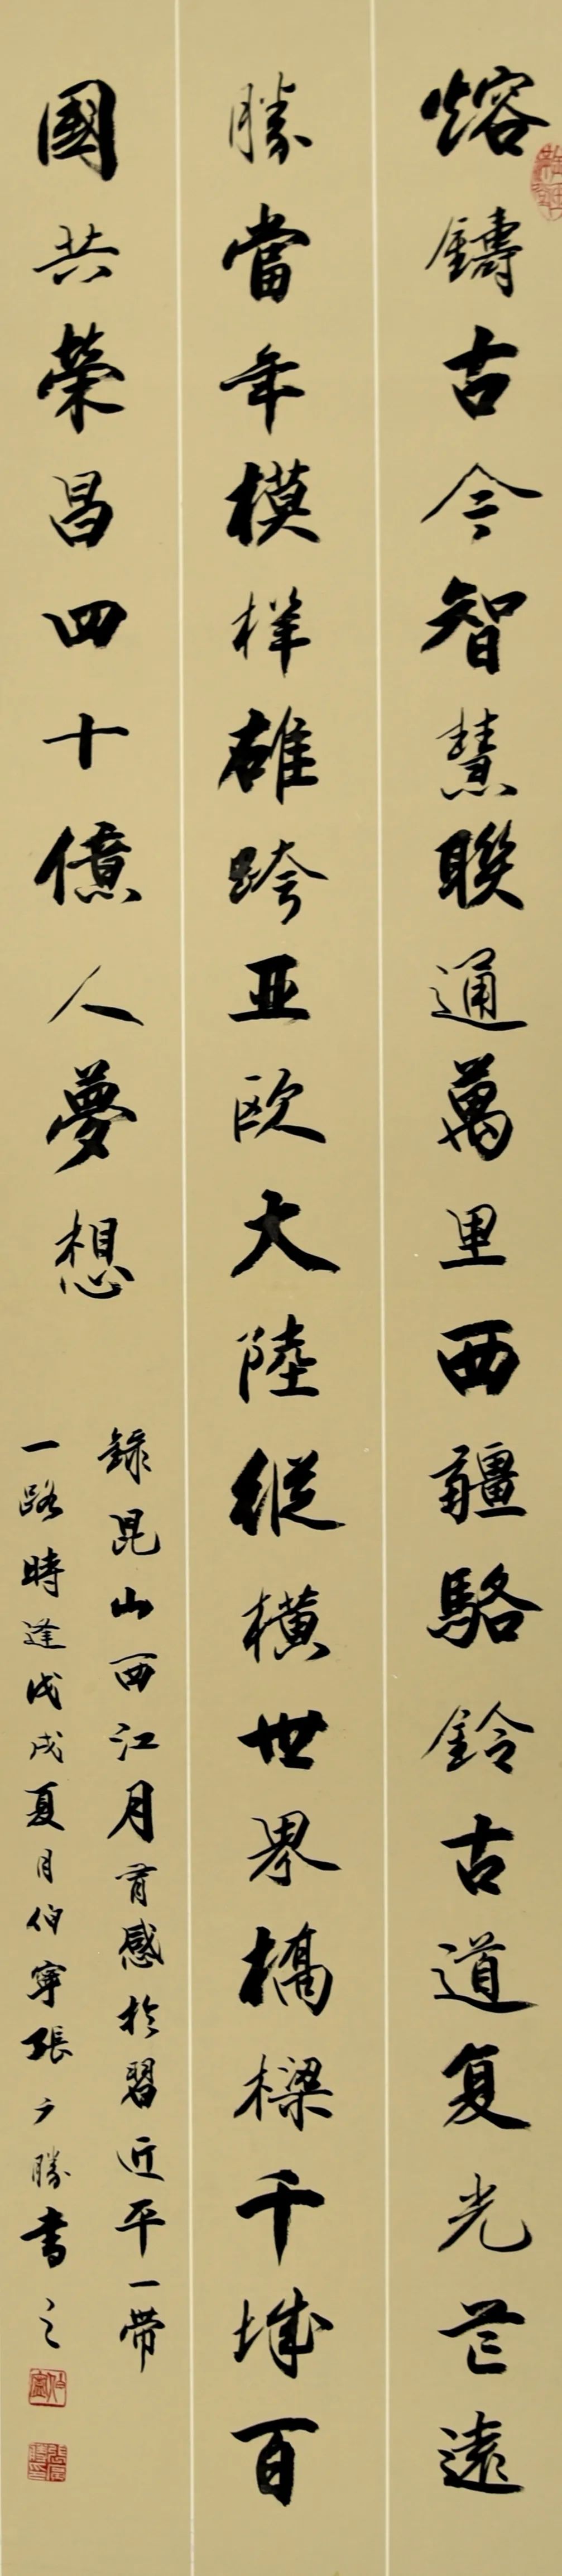 熔鑄古今智慧聯通萬里西疆駱鈴古道复光芒遠
勝當年模样雄跨亚欧大陸縱橫世界橋樑千城百
國共榮昌四十億人夢想
錄昆山西江月有感於習近平一帶
一路時逢戊戌夏月伯寧張户勝書之